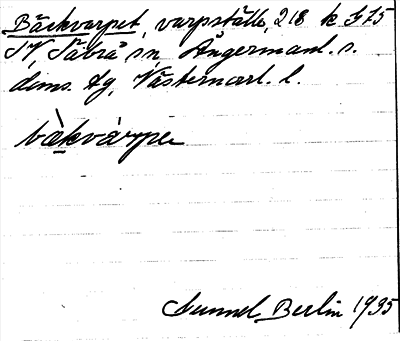 Bäckvarpet, varpställe, 218 k G15
SV, Säbrå sn, Ångermanl. s.
doms. dg, Västernorrl. l.
bä̀kvárpe
Gunnel Berlin 1935